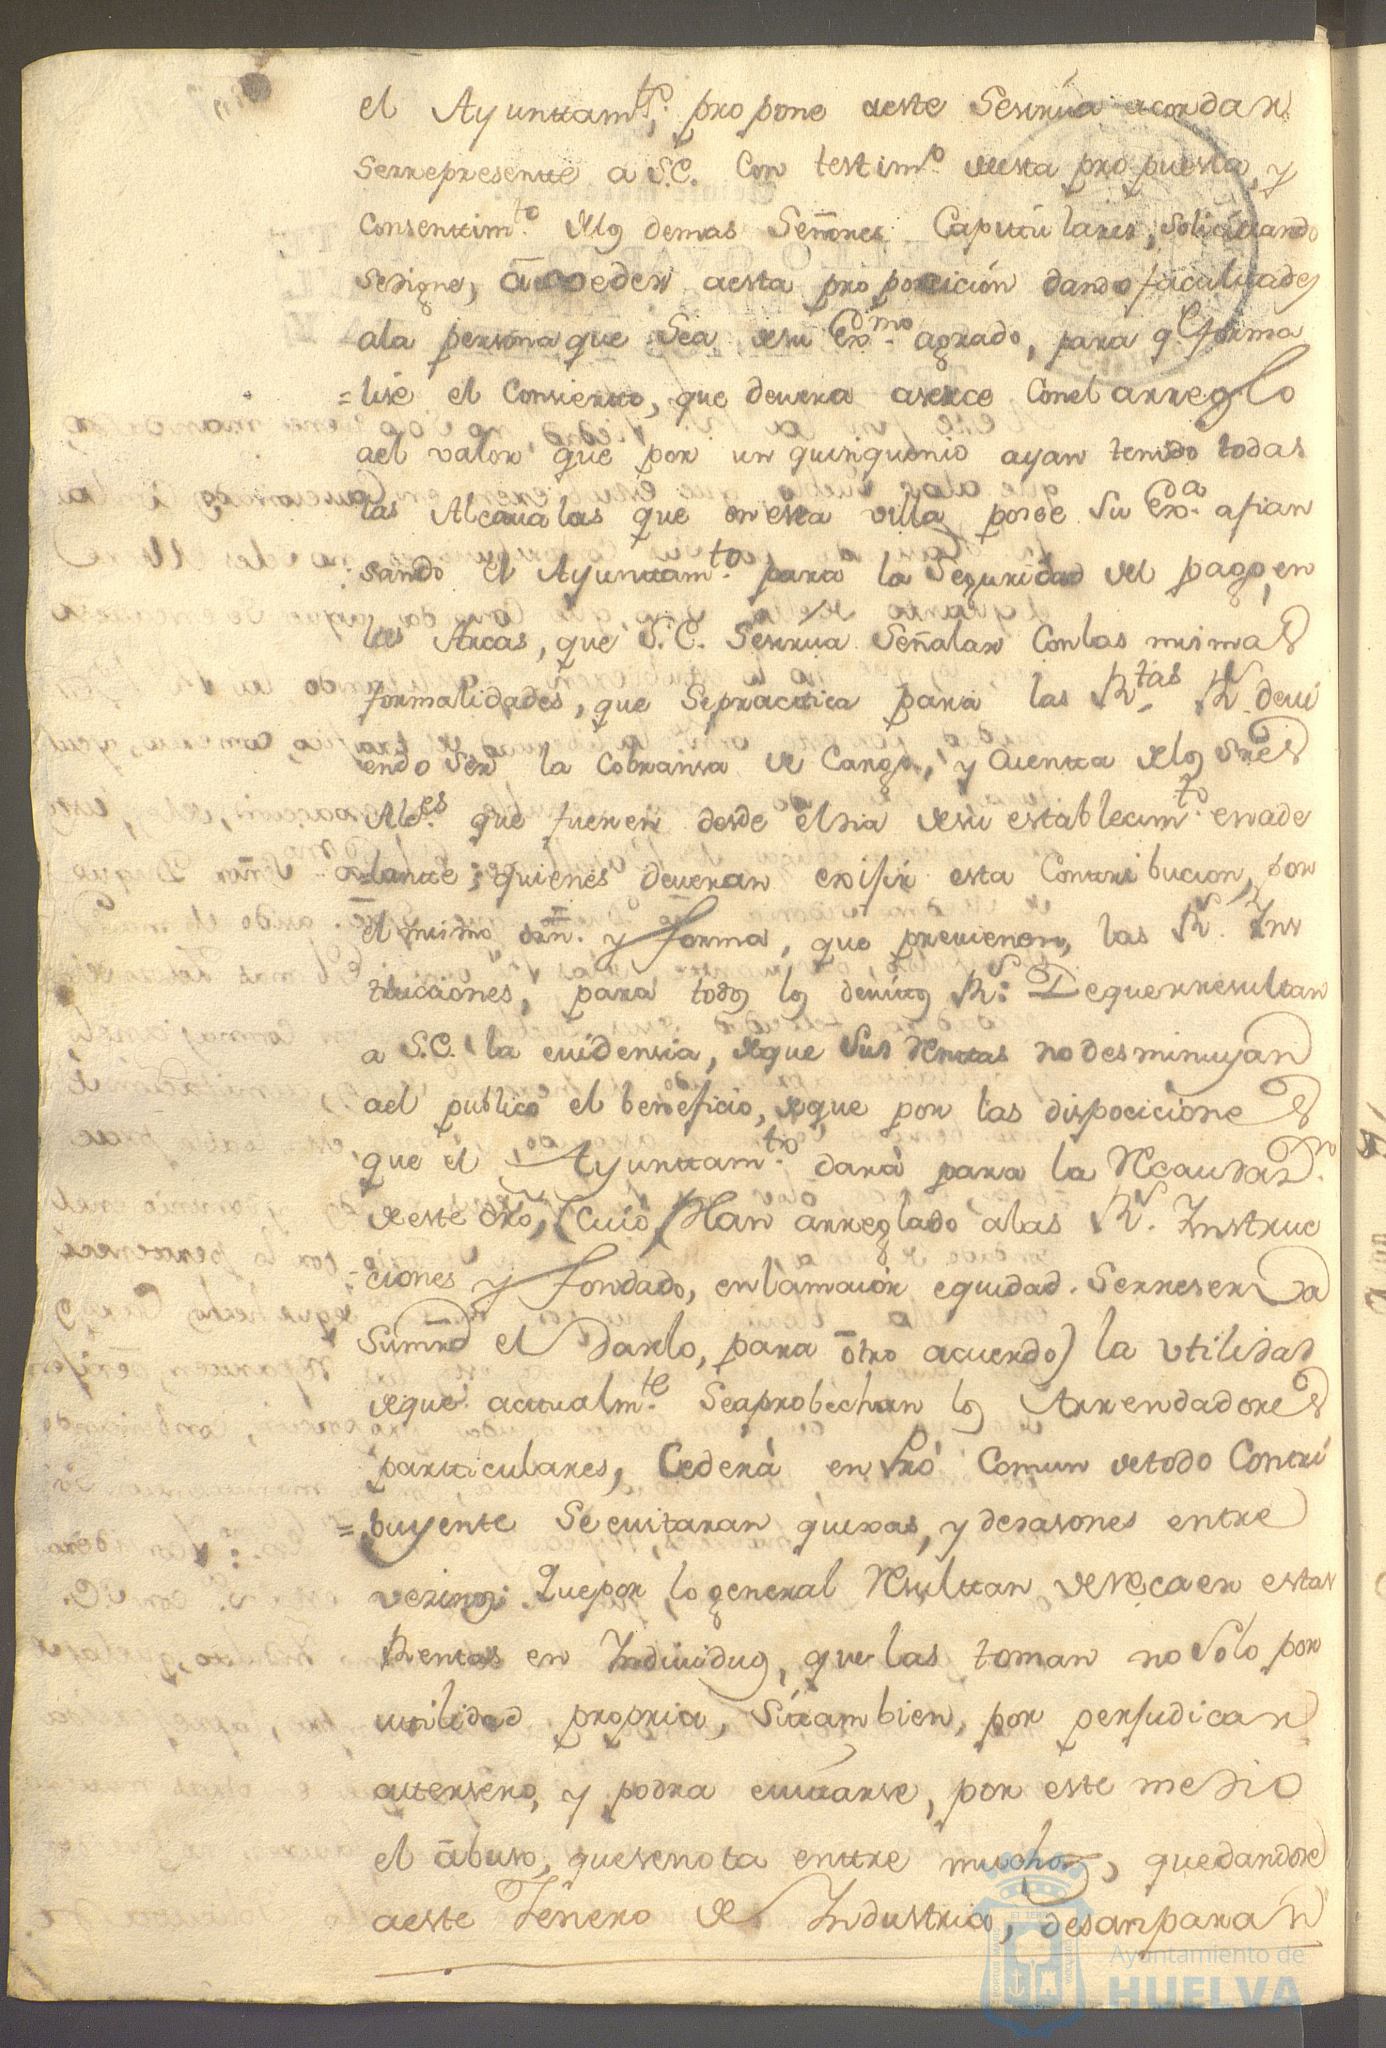 el Ayunttamto. propone aeste Serviria acordar
serrepresentte a S.E. Con testimo. deesta propuesta, y
Consenttimto. delos demas Señores Capittulares, solicittando
sedigne, acceder aesta proporcición dando facultades
ala persona que sea desu Exmo. agrado, para qe forma
=lise el Conviertto, que devera aserce Conel arreglo
ael valor que por un quinquenio ayan tenido todas
las Alcavalas que en esta villa posee Su Exa. afian
sando el Ayunttamto. para la Seguridad del pago, en
las Arcas, que S.E. Servria Señalar Conlas mimas
formalidades, que Sepracttica para las Rtas. Rs. devi
endo Ser la Cobransa de Cargo, y Cuentta delos Sres
Aldes. que fueren desde eldia desu establecimto. enade
=lantte; quienes deveran exijir esta Conttribucion, por
el mimo orn. y forma, que previenen, las Rs. Ins
trucciones, para todos los devitos Rs: Dequerresulttan
a S.E. la evidensia, deque Sus Renttas nodesminuyan
ael publico el beneficio, deque por las disposiciones
que el Ayunttamtto. dará para la Recaudazn.
deeste dro, (Cuio Plan arreglado alas Rs. Instruc
ciones y fondado, enlamaior equidad. Serreserva
Sumrd el Darlo, para otro acuerdo) la utilidad
deque acttualmte. Seaprobechan los Arrendadores
partticulares, Cederá en Pró Comun detodo Contri
=buyente Se evitaran quexas, y desasones entre
vezinos: Quepor logeneral Resulttan deRecaer estas
Rentas en Individuos, que las toman no Solo por
utilidad propria, Sitambien, por perjudicar
attersero, y podra evittarse, por este medio
el abuso, quesenota enttre muchos, quedandose
aeste Jenero de Industria, desanparan
Ayuntamiento de
HUELVA